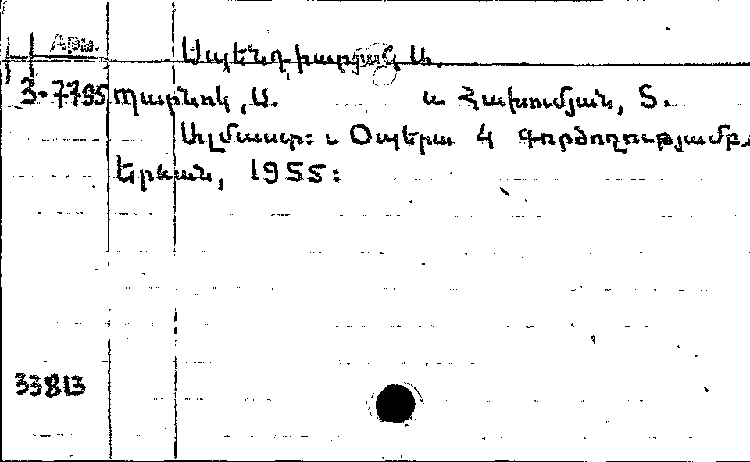 Арм.
Սպենդիարյան Ա.
3-7795 Պարնոկ, Ս. և Հախումյան, Տ.
Ալմաստ: Օպերա 4 գործողությամբ.
Երևան, 1955:
33813